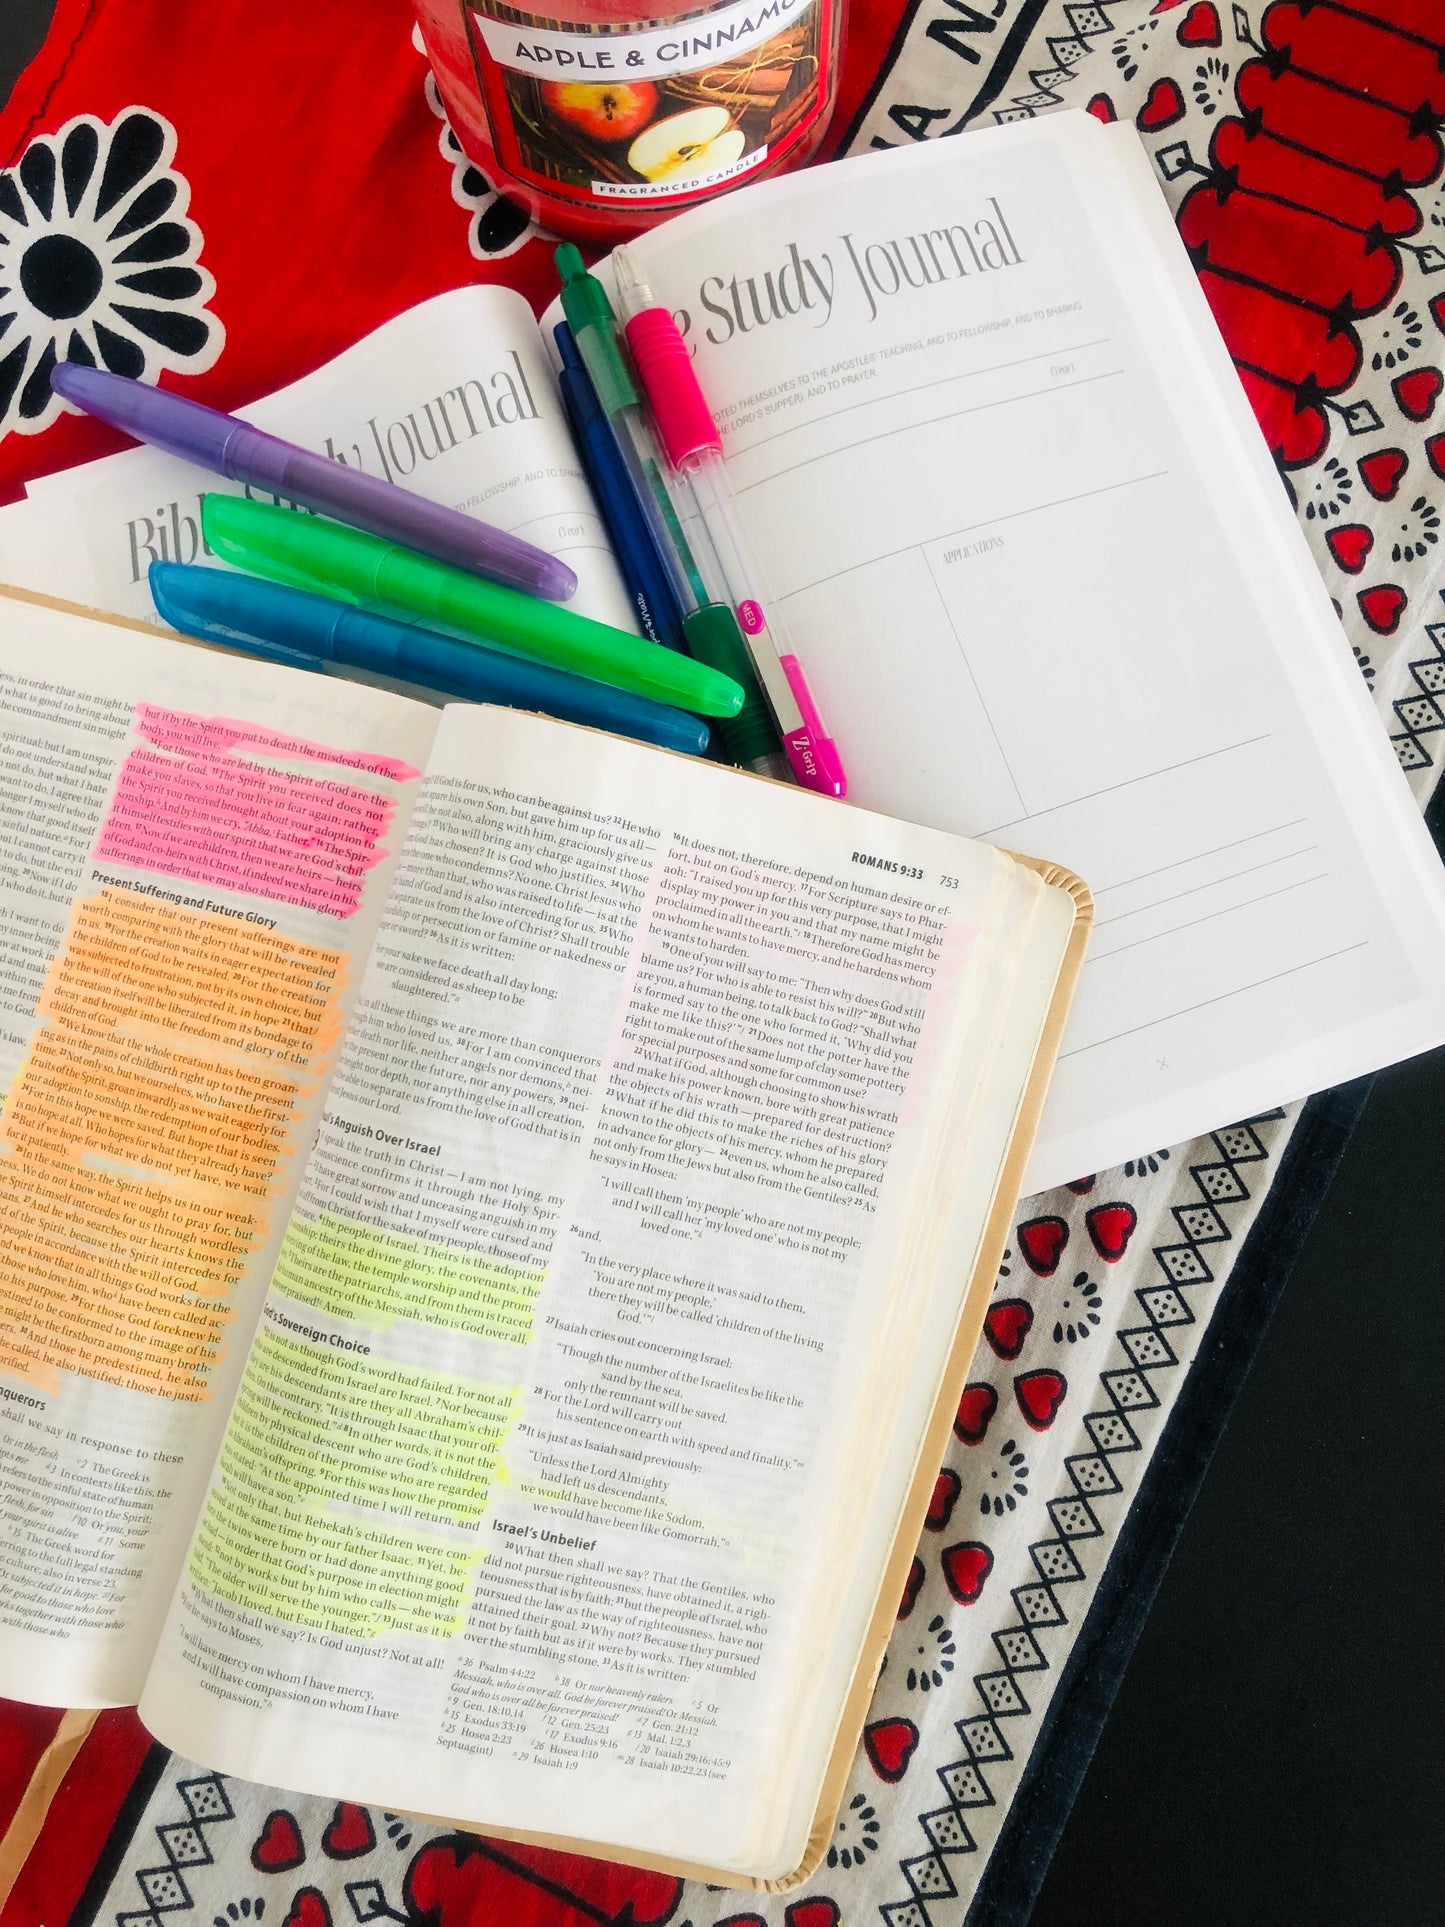 APPLE & CINNAMO
FRAGRANCED CANDLE
NA N
e Study Journal
OTED THEMSELVES TO THE APOSTLES' TEACHING, AND TO FELLOWSHIP, AND TO SHARING
HE LORD'S SUPPER), AND TO PRAYER.
APPLICATIONS
Journal
TO FELLOWSHIP, AND TO
MED
Z Grip
ess, in order that sin might be
what is good to bring about
the commandment sin might
spiritual; but I am unspir-
do not understand what
o not do, but what I hate
want to do, I agree that
longer I myself who do
know that good itself
sinful nature. For I
but I cannot carry it
to do, but the evil
ing. 20 Now if I do
I who do it, but it
but if by the Spirit you put to death the misdeeds of the
body, you will live.
14 For those who are led by the Spirit of God are the
children of God. 15 The Spirit you received does not
make you slaves, so that you live in fear again; rather,
the Spirit you received brought about your adoption to
sonship. And by him we cry, "Abba, Father." 16 The Spir-
it himself testifies with our spirit that we are God's chil-
dren. 17 Now if we are children, then we are heirs — heirs
of God and co-heirs with Christ, if indeed we share in his
sufferings in order that we may also share in his glory.
Present Suffering and Future Glory
18 I consider that our present sufferings are not
worth comparing with the glory that will be revealed
in us. 19 For the creation waits in eager expectation for
the children of God to be revealed. 20 For the creation
was subjected to frustration, not by its own choice, but
by the will of the one who subjected it, in hope 21 that
the creation itself will be liberated from its bondage to
decay and brought into the freedom and glory of the
children of God.
22 We know that the whole creation has been groan-
ing as in the pains of childbirth right up to the present
time. 23 Not only so, but we ourselves, who have the first-
fruits of the Spirit, groan inwardly as we wait eagerly for
our adoption to sonship, the redemption of our bodies.
24 For in this hope we were saved. But hope that is seen
is no hope at all. Who hopes for what they already have?
25 But if we hope for what we do not yet have, we wait
for it patiently.
26 In the same way, the Spirit helps us in our weak-
ness. We do not know what we ought to pray for, but
the Spirit himself intercedes for us through wordless
groans. 27 And he who searches our hearts knows the
mind of the Spirit, because the Spirit intercedes for
people in accordance with the will of God.
And we know that in all things God works for the
those who love him, who have been called ac-
to his purpose. 29 For those God foreknew he
estined to be conformed to the image of his
might be the firstborn among many broth-
ers. 30 And those he predestined, he also
he called, he also justified; those he justi-
orified.
nquerors
shall we say in response to these
ROMANS 9:33 753
If God is for us, who can be against us? 32 He who
not spare his own Son, but gave him up for us all —
will he not also, along with him, graciously give us
33 Who will bring any charge against those
God has chosen? It is God who justifies. 34 Who
is the one who condemns? No one. Christ Jesus who
— more than that, who was raised to life — is at the
hand of God and is also interceding for us. 35 Who
separate us from the love of Christ? Shall trouble
or persecution or famine or nakedness or
or sword? 36 As it is written:
"For your sake we face death all day long;
we are considered as sheep to be
slaughtered."
in all these things we are more than conquerors
him who loved us. 38 For I am convinced that
neither death nor life, neither angels nor demons, nei-
the present nor the future, nor any powers, 39 nei-
height nor depth, nor anything else in all creation,
be able to separate us from the love of God that is in
Jesus our Lord.
Paul's Anguish Over Israel
I speak the truth in Christ — I am not lying, my
conscience confirms it through the Holy Spir-
I have great sorrow and unceasing anguish in my
3 For I could wish that I myself were cursed and
from Christ for the sake of my people, those of my
race, 4 the people of Israel. Theirs is the adoption
theirs the divine glory, the covenants, the
of the law, the temple worship and the prom-
Theirs are the patriarchs, and from them is traced
human ancestry of the Messiah, who is God over all,
praised! Amen.
God's Sovereign Choice
It is not as though God's word had failed. For not all
who are descended from Israel are Israel. 7 Nor because
they are his descendants are they all Abraham's chil-
On the contrary, "It is through Isaac that your off-
spring will be reckoned." 8 In other words, it is not the
children by physical descent who are God's children,
but it is the children of the promise who are regarded
as Abraham's offspring. 9 For this was how the promise
was stated: "At the appointed time I will return, and
Sarah will have a son."
Not only that, but Rebekah's children were con-
ceived at the same time by our father Isaac. 11 Yet, be-
fore the twins were born or had done anything good
or bad — in order that God's purpose in election might
stand: 12 not by works but by him who calls — she was
told, "The older will serve the younger." 13 Just as it is
written: "Jacob I loved, but Esau I hated."
14 What then shall we say? Is God unjust? Not at all!
For he says to Moses,
"I will have mercy on whom I have mercy,
and I will have compassion on whom I have
compassion."
16 It does not, therefore, depend on human desire or ef-
fort, but on God's mercy. 17 For Scripture says to Phar-
aoh: "I raised you up for this very purpose, that I might
display my power in you and that my name might be
proclaimed in all the earth." 18 Therefore God has mercy
on whom he wants to have mercy, and he hardens whom
he wants to harden.
19 One of you will say to me: "Then why does God still
blame us? For who is able to resist his will?" 20 But who
are you, a human being, to talk back to God? "Shall what
is formed say to the one who formed it, 'Why did you
make me like this?'" 21 Does not the potter have the
right to make out of the same lump of clay some pottery
for special purposes and some for common use?
22 What if God, although choosing to show his wrath
and make his power known, bore with great patience
the objects of his wrath — prepared for destruction?
23 What if he did this to make the riches of his glory
known to the objects of his mercy, whom he prepared
in advance for glory — 24 even us, whom he also called,
not only from the Jews but also from the Gentiles? 25 As
he says in Hosea:
"I will call them 'my people' who are not my people;
and I will call her 'my loved one' who is not my
loved one,"
26 and,
"In the very place where it was said to them,
'You are not my people,'
there they will be called 'children of the living
God.'"
27 Isaiah cries out concerning Israel:
"Though the number of the Israelites be like the
sand by the sea,
only the remnant will be saved.
28 For the Lord will carry out
his sentence on earth with speed and finality."
29 It is just as Isaiah said previously:
"Unless the Lord Almighty
had left us descendants,
we would have become like Sodom,
we would have been like Gomorrah."
Israel's Unbelief
30 What then shall we say? That the Gentiles, who
did not pursue righteousness, have obtained it, a righ-
teousness that is by faith; 31 but the people of Israel, who
pursued the law as the way of righteousness, have not
attained their goal. 32 Why not? Because they pursued
it not by faith but as if it were by works. They stumbled
over the stumbling stone. 33 As it is written:
a 36 Psalm 44:22 b 38 Or nor heavenly rulers c 5 Or
Messiah, who is over all. God be forever praised! Or Messiah.
God who is over all be forever praised! d 7 Gen. 21:12
e 9 Gen. 18:10,14 f 12 Gen. 25:23 g 13 Mal. 1:2,3
h 15 Exodus 33:19 i 17 Exodus 9:16 j 20 Isaiah 29:16; 45:9
k 25 Hosea 2:23 l 26 Hosea 1:10 m 28 Isaiah 10:22,23 (see
Septuagint) n 29 Isaiah 1:9